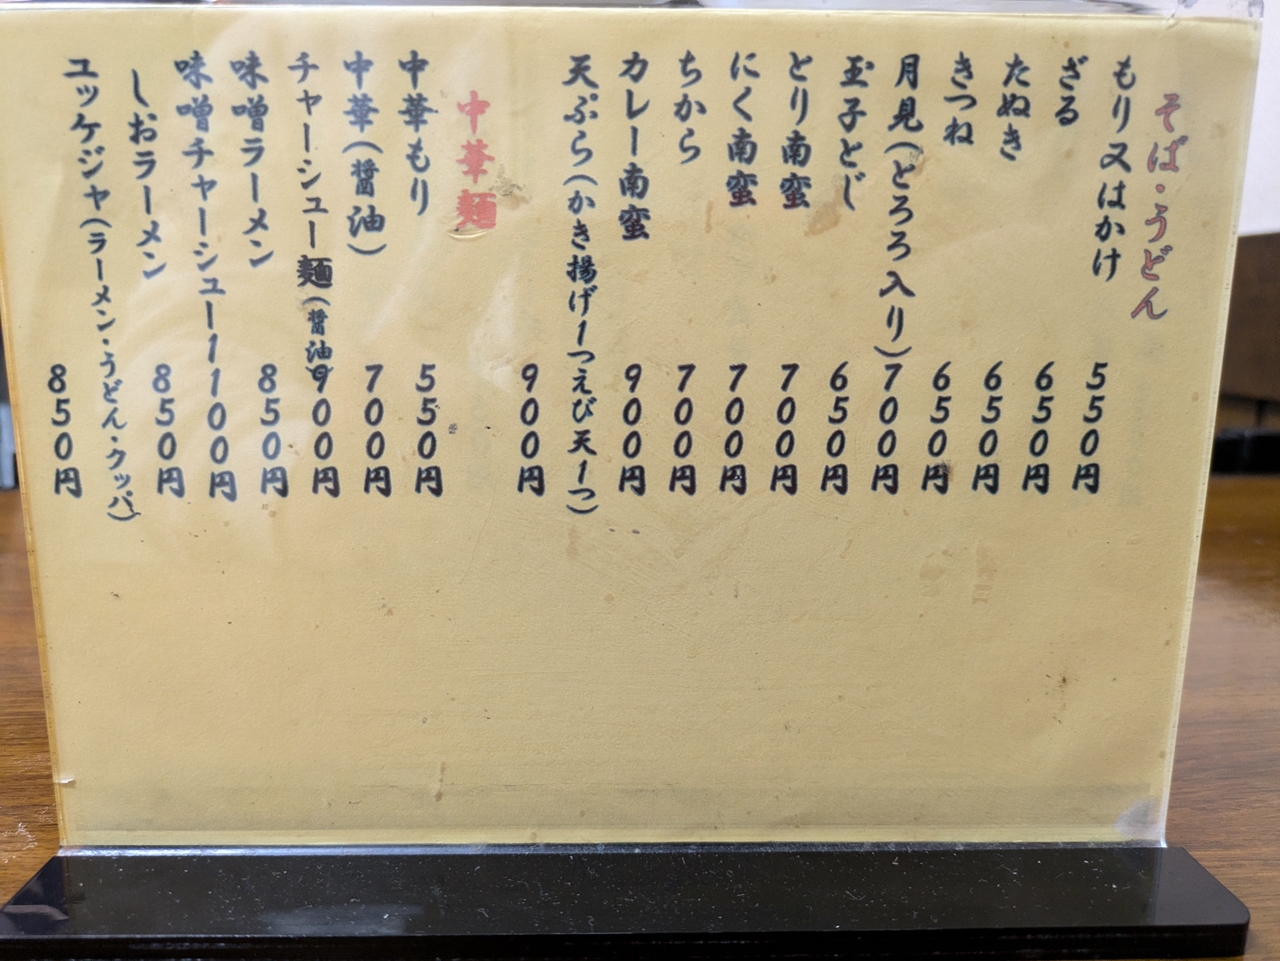 そば・うどん
もり又はかけ 550円
ざる 650円
たぬき 650円
きつね 650円
月見(とろろ入り) 700円
玉子とじ 650円
とり南蛮 700円
にく南蛮 700円
ちから 700円
カレー南蛮 900円
天ぷら(かき揚げ1つえび天1つ) 900円
中華麺
中華もり 550円
中華(醤油) 700円
チャーシュー麺(醤油) 900円
味噌ラーメン 850円
味噌チャーシュー 1100円
しおラーメン 850円
ユッケジャ(ラーメン・うどん・クッパ) 850円